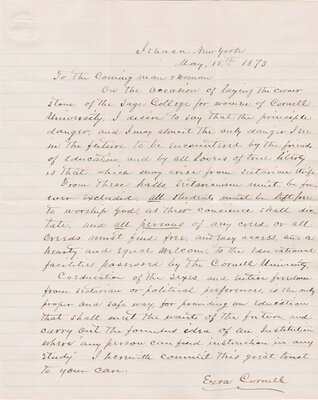 Ithaca New York
May, 15th 1873
To The Coming man & woman
On the occasion of laying the corner
stone of the Sage College for women of Cornell
University, I desire to say that the principle
danger, and I may almost the only danger I see
in the future to be encountered by the friends
of Education, and by all lovers of true liberty
is that which may arise from sectarian strife.
From these halls, Sectarianism must be for
ever excluded, all students must be left free
to worship God, as their concience shall dic
tate, and all persons of any creed or all
Creeds must find free, and easy access, and a
hearty and Equal Welcome, to the Educational
facilities possessed by the Cornell University.
Coeducation of the Sexes, and entire freedom
from Sectarian or political preferences, is the only
proper and safe way for providing an Education
that shall meet the wants of the future, and
carry out the founders idea of an Institution
where "any person can find instruction in any
Study" I herewith commit this great trust
to your care.
Ezra Cornell